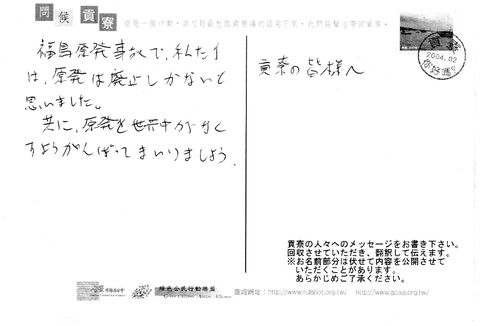 問候貢寮
這是一個行動，請您把最想跟貢寮講的話寫下來，我們將幫您帶回貢寮。
福島原発事故で、私たち
は、原発は廃止しかないと
思いました。
共に、原発を世界中からなく
すようがんばってまいりましょう。
貢寮の皆様へ
貢寮
2004.02
你好嗎？
貢寮の人々へのメッセージをお書き下さい。
回収させていただき、翻訳して伝えます。
※お名前部分は伏せて内容を公開させて
いただくことがあります。
あらかじめご了承ください。
綠色公民行動聯盟
Green Citizens' Action Alliance
查詢網址：http://www.fullshot.org.tw/ http://www.gcaa.org.tw/